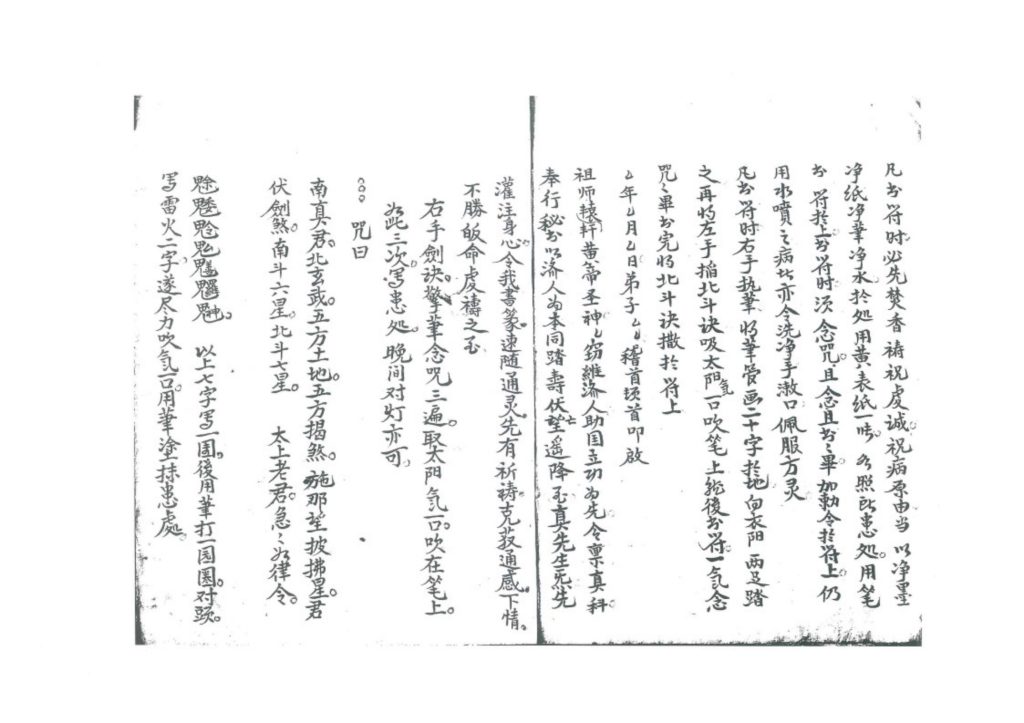 凡书符时必先焚香祷祝虔诚祝病原由当以净墨
净纸净笔净水於处用黄表纸一 照 患处用笔
书符於上书符时须念咒且念且书书毕加勅令於符上仍
用水噴之病 亦令洗净手漱口佩服方灵
凡书符时右手执筆将筆管画二十字於地向 阳两足踏
之再将左手掐北斗诀吸太阳氣一口吹笔上然後书符一气念
咒咒畢书完将北斗诀撒於符上
厶年厶月厶日弟子厶厶稽首顿首叩啟
祖师轅轩黄帝圣神 窃維济人助国立功为先令禀真科
奉行秘书以济人为本同踏壽 伏望遥降至真先生 先
灌注身心令我書篆速随通灵先有祈祷克 通感下情
不勝皈命虔禱之至
右手劍诀擎筆念咒三遍取太阳氣一口吹在笔上
如此三次写患处晚间对灯亦可
咒曰
南真君北玄武五方土地五方揭煞 那望披拂星君
伏劍煞南斗六星北斗七星 太上老君急急如律令
以上七字写一圈後用筆打一圆圈对頭
写雷火二字遂尽力吹氣一口用筆塗抹患處